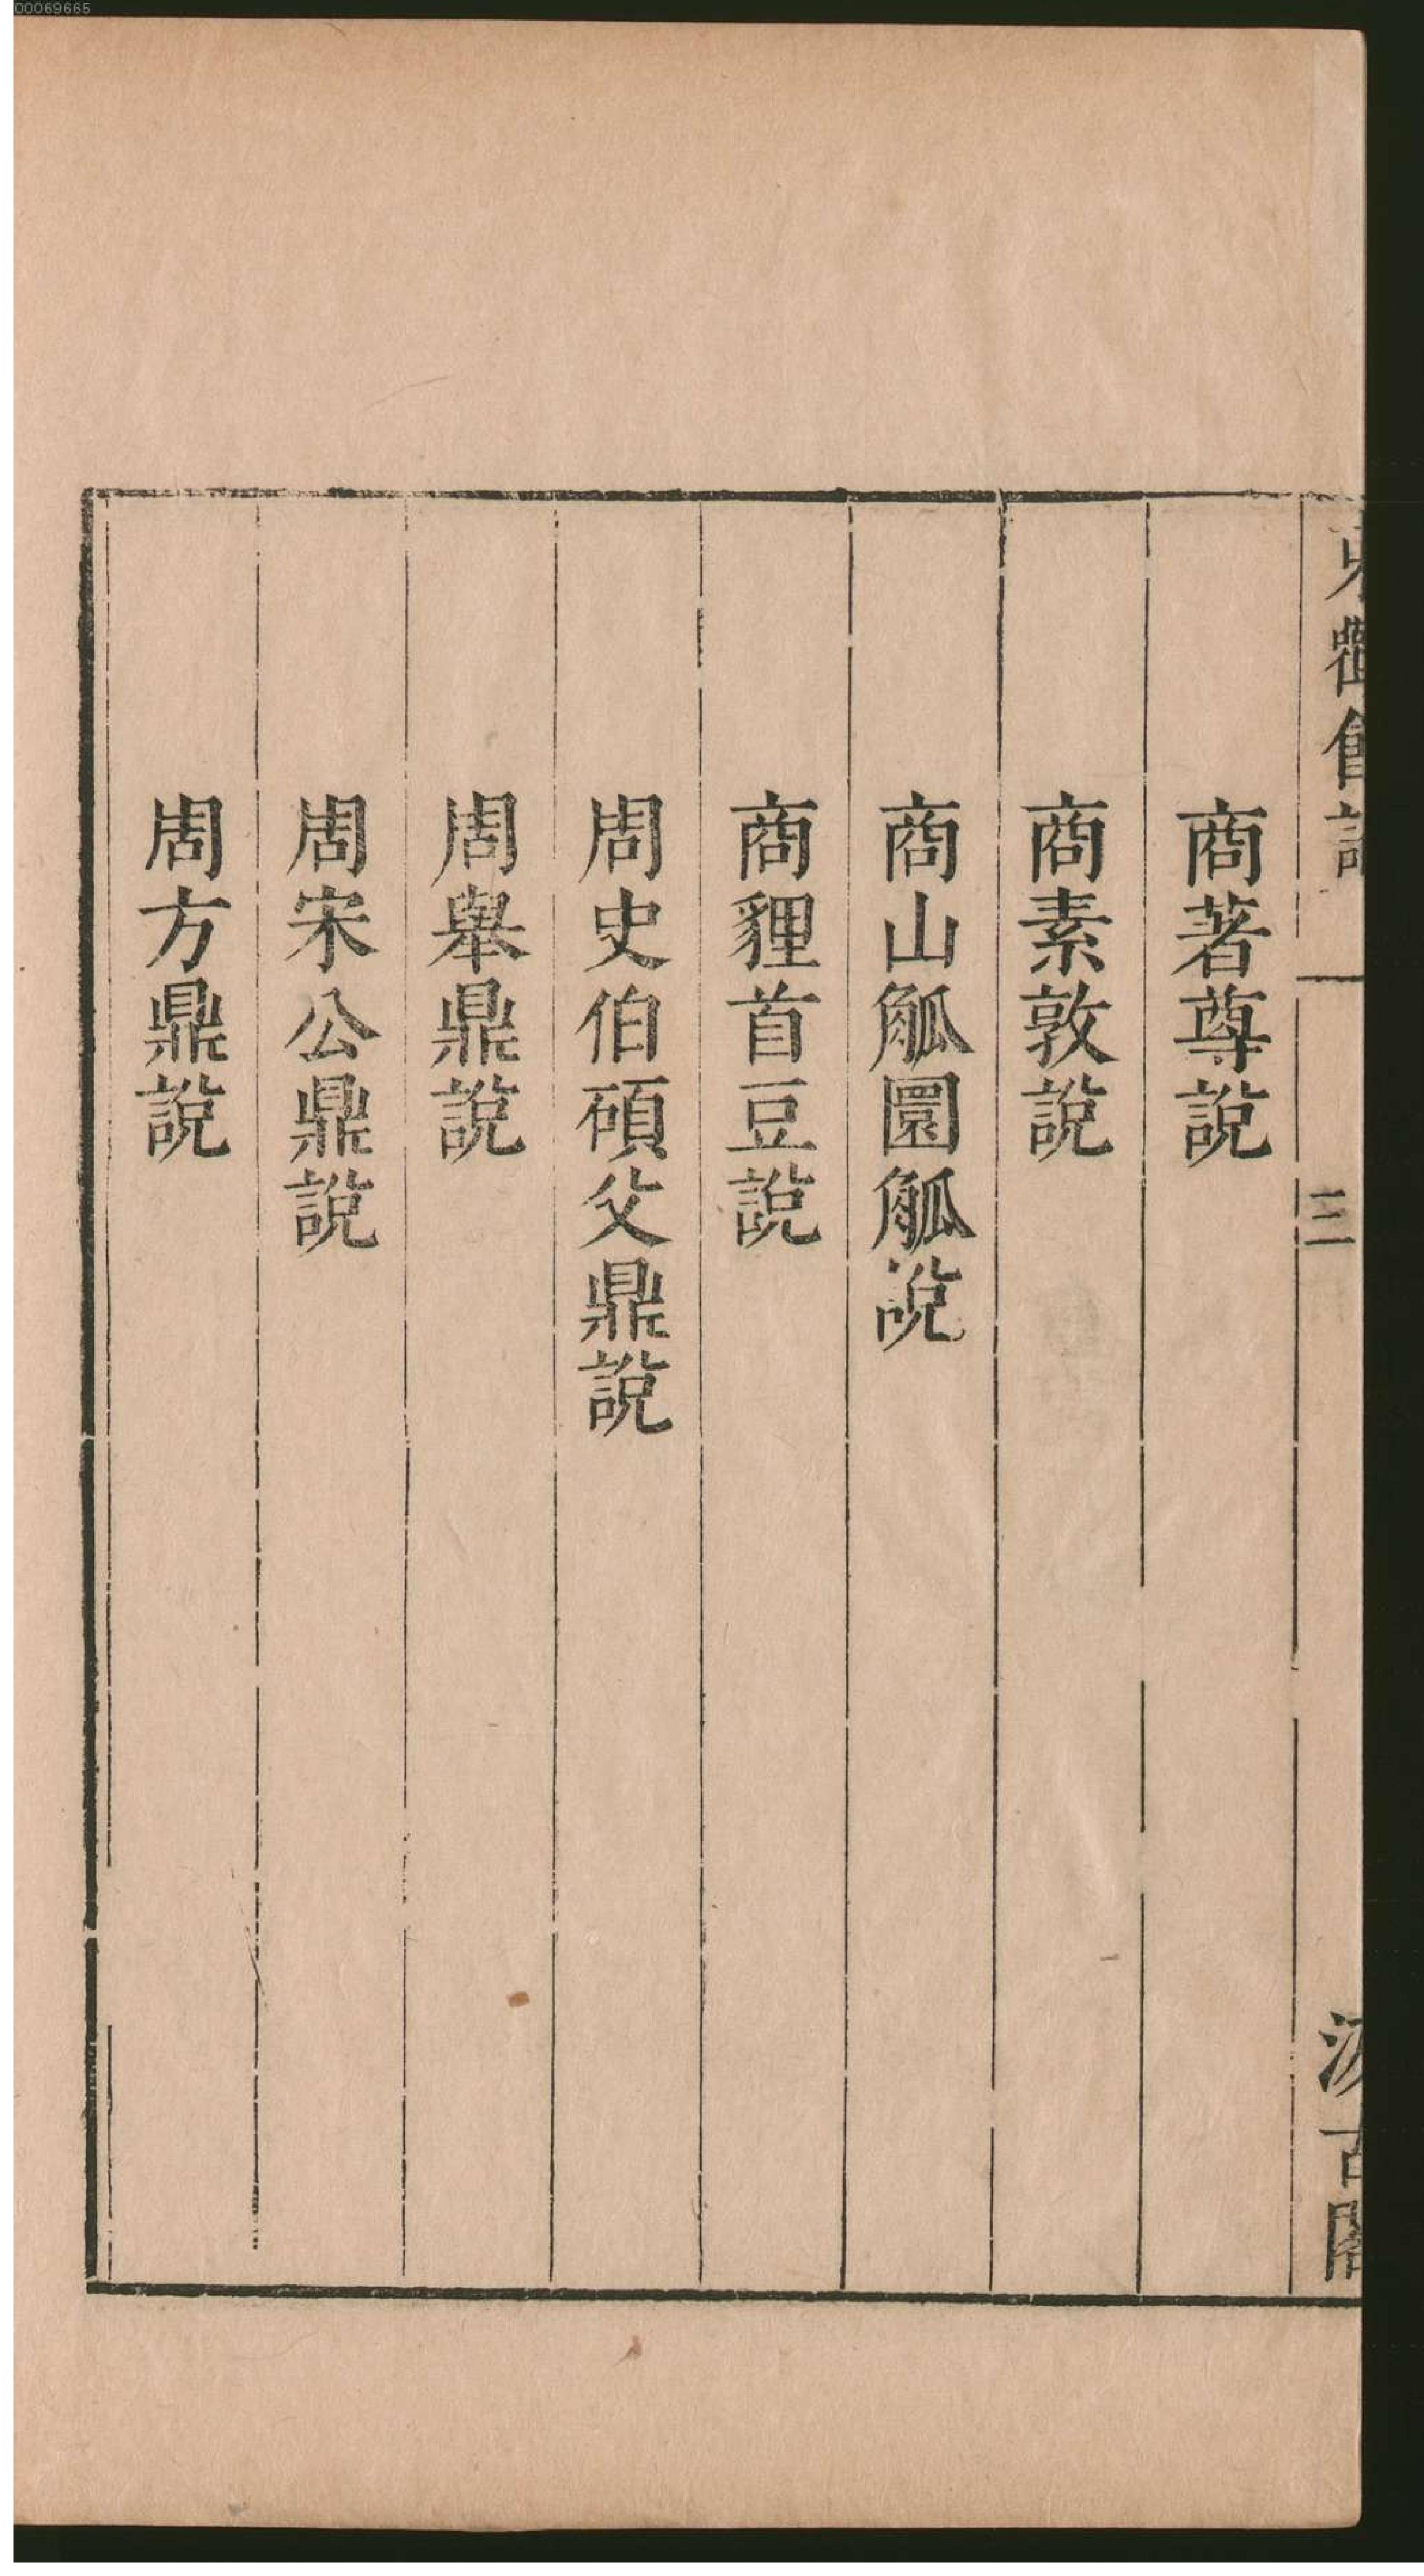 00069665
商著尊說
商素敦說
商山觚圜觚說
商貍首豆說
周史伯碩父鼎說
周舉鼎說
周宋公鼎說
周方鼎說
三
古閣